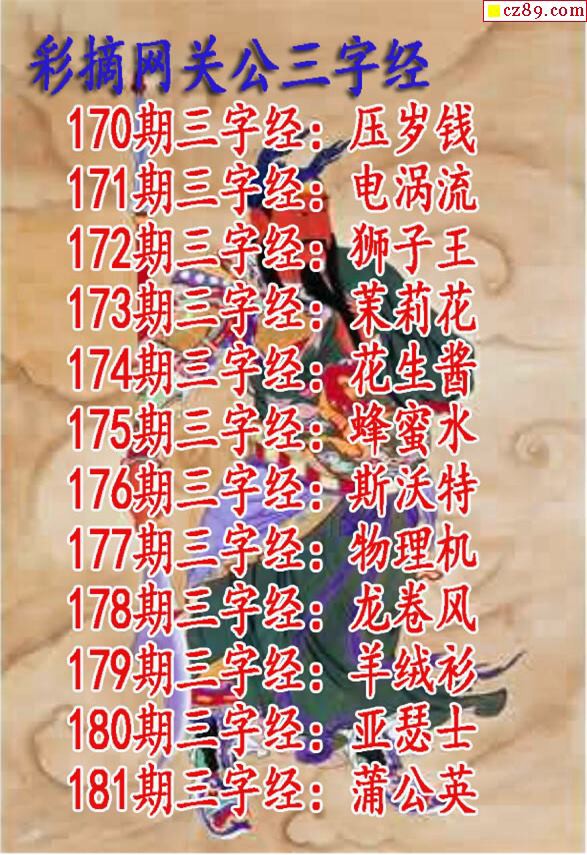 cz89.com
彩摘网关公三字经
170期三字经：压岁钱
171期三字经：电涡流
172期三字经：狮子王
173期三字经：茉莉花
174期三字经：花生酱
175期三字经：蜂蜜水
176期三字经：斯沃特
177期三字经：物理机
178期三字经：龙卷风
179期三字经：羊绒衫
180期三字经：亚瑟士
181期三字经：蒲公英